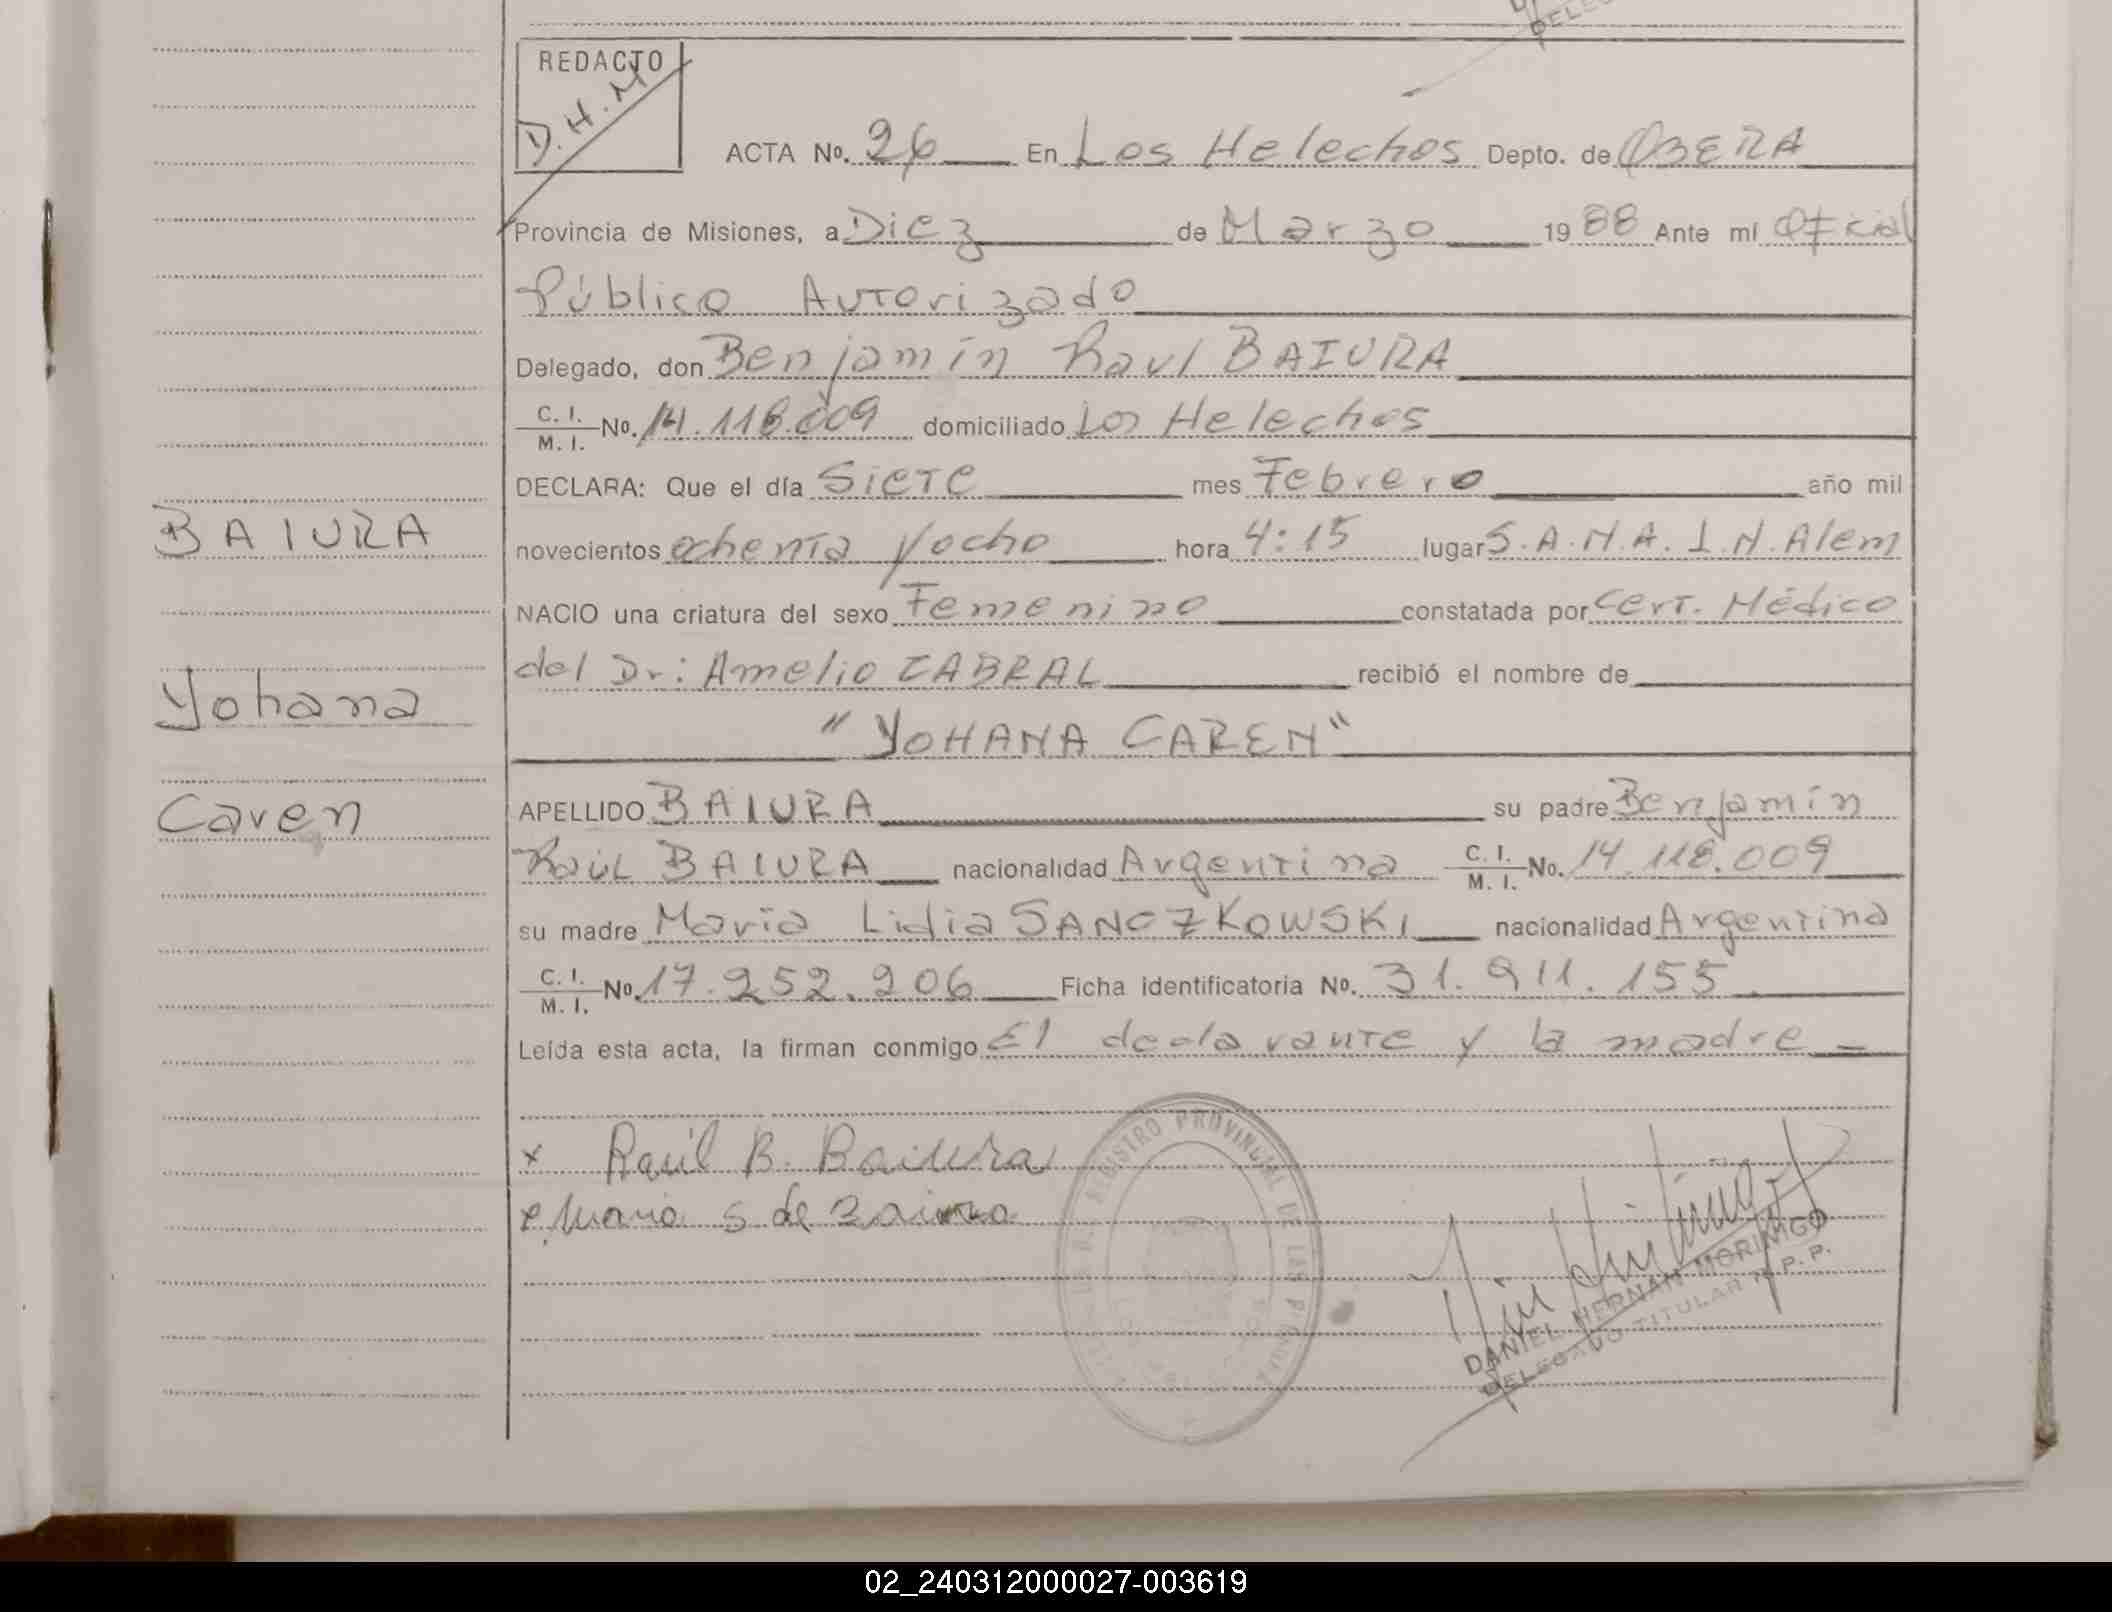 REDACTO
D.H.M
ACTA Nº. 26 En Los Helechos Depto. de OBERA
Provincia de Misiones, a Diez de Marzo 1988 Ante mí Oficial
Público Autorizado
Delegado, don Benjamín Raul BAIURA
C. I. / M. I. Nº. 14.118.009 domiciliado Los Helechos
DECLARA: Que el día Siete mes Febrero año mil
BAIURA
novecientos ochenta y ocho hora 4:15 lugar S.A.M.A. L.N. Alem
NACIO una criatura del sexo Femenino constatada por Cert. Médico
del Dr: Amelio CABRAL recibió el nombre de
Yohana
"YOHANA CAREN"
Caren
APELLIDO BAIURA su padre Benjamín
Raúl BAIURA nacionalidad Argentina C. I. / M. I. Nº. 14.118.009
su madre María Lidia SANCZKOWSKI nacionalidad Argentina
C. I. / M. I. Nº. 17.252.206 Ficha identificatoria Nº. 31.911.155
Leída esta acta, la firman conmigo El declarante y la madre
x Raúl B. Baiura
x Maria S de Baiura
REGISTRO PROVINCIAL DE LAS
DANIEL HERNAN MORINIGO
DELEGADO TITULAR R.P.P.
02_240312000027-003619